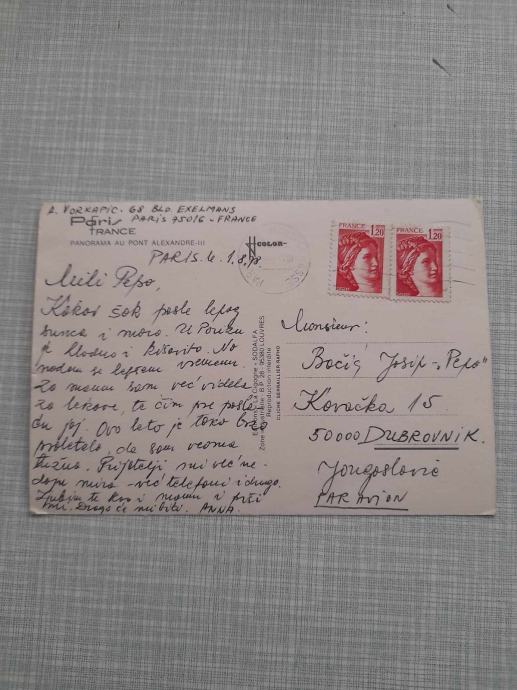 A. VORKAPIC. 68 BLD. EXELMANS
PARIS 75016 - FRANCE
Paris
FRANCE
PANORAMA AU PONT ALEXANDRE-III
COLOR-
PARIS. le 1.8.78
Mili Pepo,
Kakav šok posle lepog
sunca i mora. U Parizu
je hladno i kišovito. Na
nadam se lepšem vremenu.
Za mamu sam već videla
za lekove, te čim pre posla
ću joj. Ovo leto je tako brzo
proletelo, da sam veoma
tužna. Prijatelji mi već ne
daju mira - već telefoni i drugo.
Ljubim te kao i mamu i piši
mi. Drago će mi biti. ANNA.
Editions "La Cigogne" - SODALFA
Zone Industrielle B.P. 28 - 95380 LOUVRES
Reproduction interdite
CLICHÉ SERRAILLIER-RAPHO
FRANCE
1,20
FRANCE
1,20
Monsieur:
Bačić Josip - "Pepo"
Kovačka 15
50000 DUBROVNIK.
Jougoslavie
PAR AVION